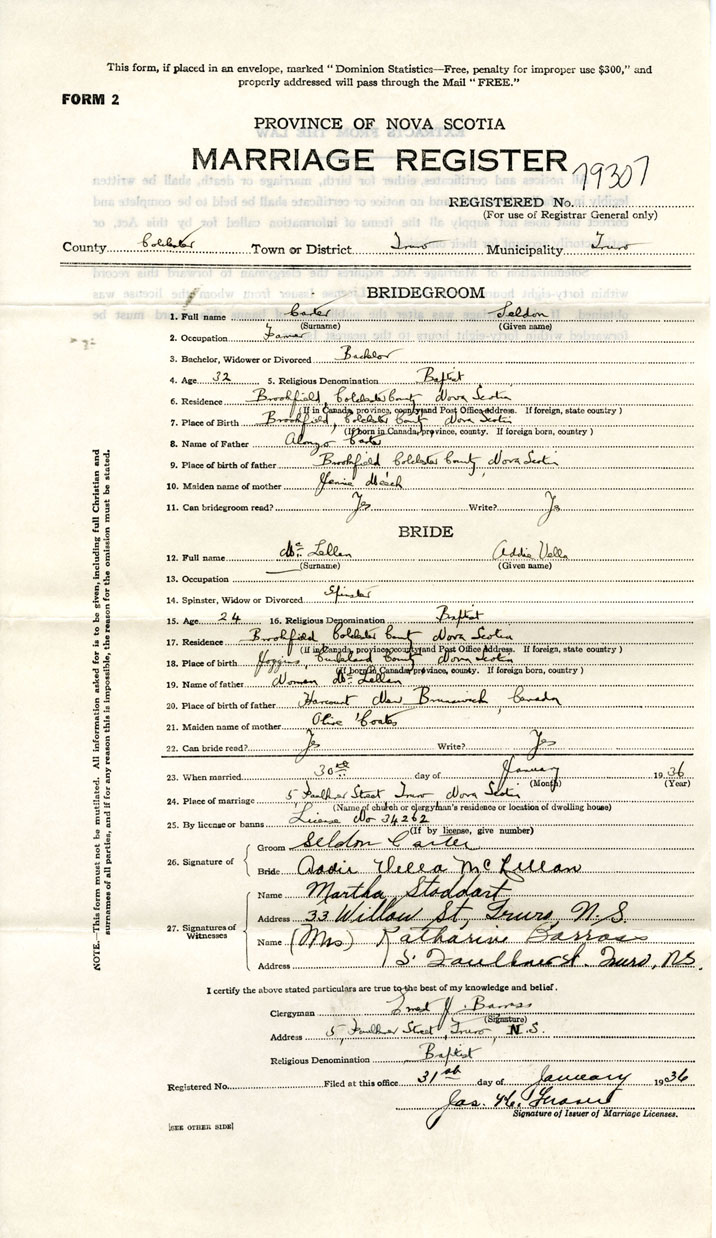 This form, if placed in an envelope, marked "Dominion Statistics—Free, penalty for improper use $300," and
properly addressed will pass through the Mail "FREE."
FORM 2
PROVINCE OF NOVA SCOTIA
MARRIAGE REGISTER
79307
REGISTERED No.
(For use of Registrar General only)
County Colchester Town or District Truro Municipality Truro
BRIDEGROOM
1. Full name Carter Seldon
(Surname) (Given name)
2. Occupation Farmer
3. Bachelor, Widower or Divorced Bachelor
4. Age 32 5. Religious Denomination Baptist
6. Residence Brookfield, Colchester County Nova Scotia
(If in Canada, province, county and Post Office address. If foreign, state country)
7. Place of Birth Brookfield, Colchester County Nova Scotia
(If born in Canada, province, county. If foreign born, country)
8. Name of Father Alonzo Carter
9. Place of birth of father Brookfield Colchester County, Nova Scotia
10. Maiden name of mother
11. Can bridegroom read? Yes Write? Yes
BRIDE
12. Full name Mc Lellan Addie Vella
(Surname) (Given name)
13. Occupation
14. Spinster, Widow or Divorced Spinster
15. Age 24 16. Religious Denomination Baptist
17. Residence Brookfield Colchester County Nova Scotia
(If in Canada, province, county and Post Office Address. If foreign, state country)
18. Place of birth Joggins, Cumberland County Nova Scotia
(If born in Canada, province, county. If foreign born, country)
19. Name of father Norman Mc Lellan
20. Place of birth of father Harcourt New Brunswick, Canada
21. Maiden name of mother Olive Coates
22. Can bride read? Yes Write? Yes
23. When married 30th day of January 1936
(Month) (Year)
24. Place of marriage 5 Faulkner Street Truro Nova Scotia
(Name of church or clergyman's residence or location of dwelling house)
25. By license or banns License No 34262
(If by license, give number)
26. Signature of
Groom Seldon Carter
Bride Addie Vella McLellan
27. Signatures of Witnesses
Name Martha Stoddart
Address 33 Willow St, Truro, N.S.
Name (Mrs) Katharine Barrass
Address 5 Faulkner St. Truro, NS.
I certify the above stated particulars are true to the best of my knowledge and belief.
Clergyman J. Barrass
(Signature)
Address 5, Faulkner Street, Truro, N.S.
Religious Denomination Baptist
Registered No. Filed at this office 31st day of January 1936
Jas.
Signature of Issuer of Marriage Licenses.
[SEE OTHER SIDE]
NOTE.—This form must not be mutilated. All information asked for is to be given, including full Christian and
surnames of all parties, and if for any reason this is impossible, the reason for the omission must be stated.